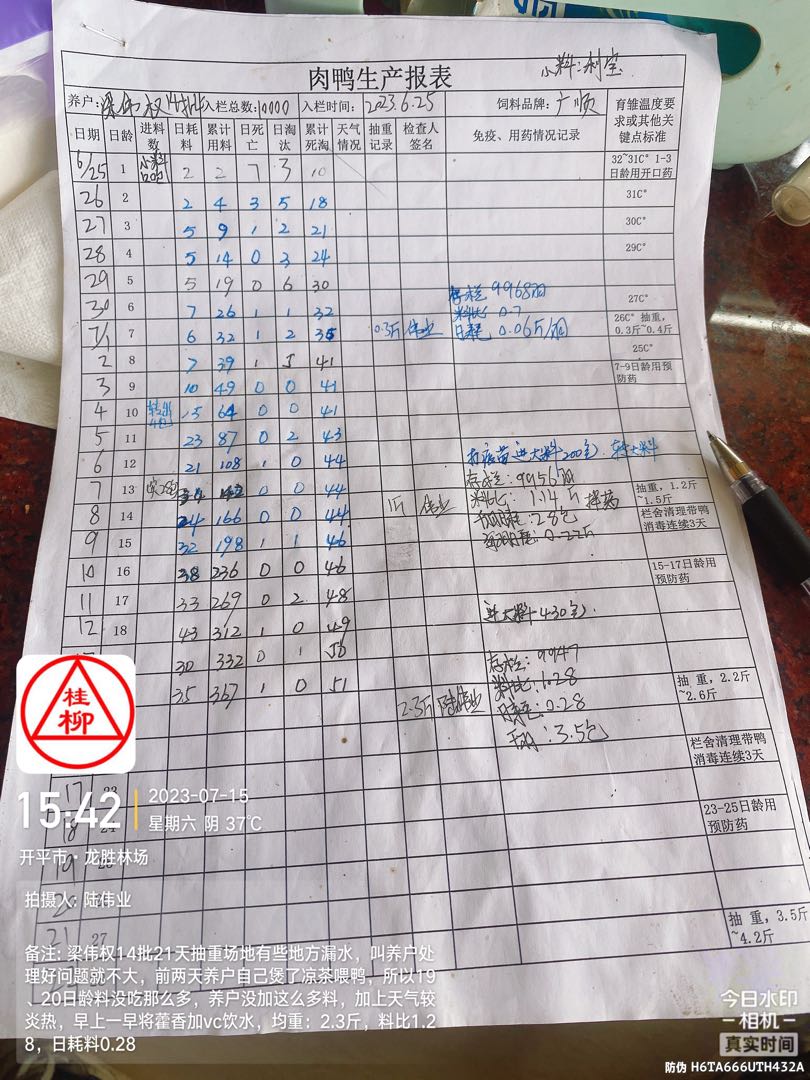 肉鸭生产报表
小料:利宝
养户: 梁伟权14批 入栏总数: 10000 入栏时间: 2023.6.25 饲料品牌: 广顺 育雏温度要求或其他关键点标准
日期 日龄 进料数 日耗料 累计用料 日死亡 日淘汰 累计死淘 天气情况 抽重记录 检查人签名 免疫、用药情况记录
6/25 1 小料 2 2 7 3 10 32~31C° 1-3日龄用开口药
26 2 2 4 3 5 18 31C°
27 3 5 9 1 2 21 30C°
28 4 5 14 0 3 24 29C°
29 5 5 19 0 6 30
30 6 7 26 1 1 32 存栏 9968羽 27C°
7/1 7 6 32 1 2 35 0.3斤 伟业 料比 0.7 26C° 抽重,0.3斤~0.4斤
日耗 0.06斤/羽
2 8 7 39 1 5 41 25C°
3 9 10 49 0 0 41 7-9日龄用预防药
4 10 15 64 0 0 41
5 11 23 87 0 2 43
6 12 21 108 1 0 44 进大料200包 转大料
7 13 34 142 0 0 44 存栏:9956羽 抽重,1.2斤~1.5斤
8 14 24 166 0 0 44 1斤 伟业 料比:1.14斤 拌药 栏舍清理带鸭消毒连续3天
9 15 32 198 1 1 46 2.8包
0.22斤
10 16 38 236 0 0 46 15-17日龄用预防药
11 17 33 269 0 2 48
12 18 43 312 1 0 49 进大料430包
30 332 0 1 50
35 367 1 0 51 2.3斤 陆伟业 存栏:9947 抽重,2.2斤~2.6斤
料比:1.28
日耗:0.28
3.5包
栏舍清理带鸭消毒连续3天
17 23
18 24 23-25日龄用预防药
19
20
21 27 抽重,3.5斤~4.2斤
桂柳
15:42 2023-07-15
星期六 阴 37℃
开平市·龙胜林场
拍摄人: 陆伟业
备注: 梁伟权14批21天抽重场地有些地方漏水，叫养户处
理好问题就不大，前两天养户自己煲了凉茶喂鸭，所以19
、20日龄料没吃那么多，养户没加这么多料，加上天气较
炎热，早上一早将藿香加vc饮水，均重：2.3斤，料比1.2
8，日耗料0.28
今日水印
相机
真实时间
防伪 H6TA666UTH432A